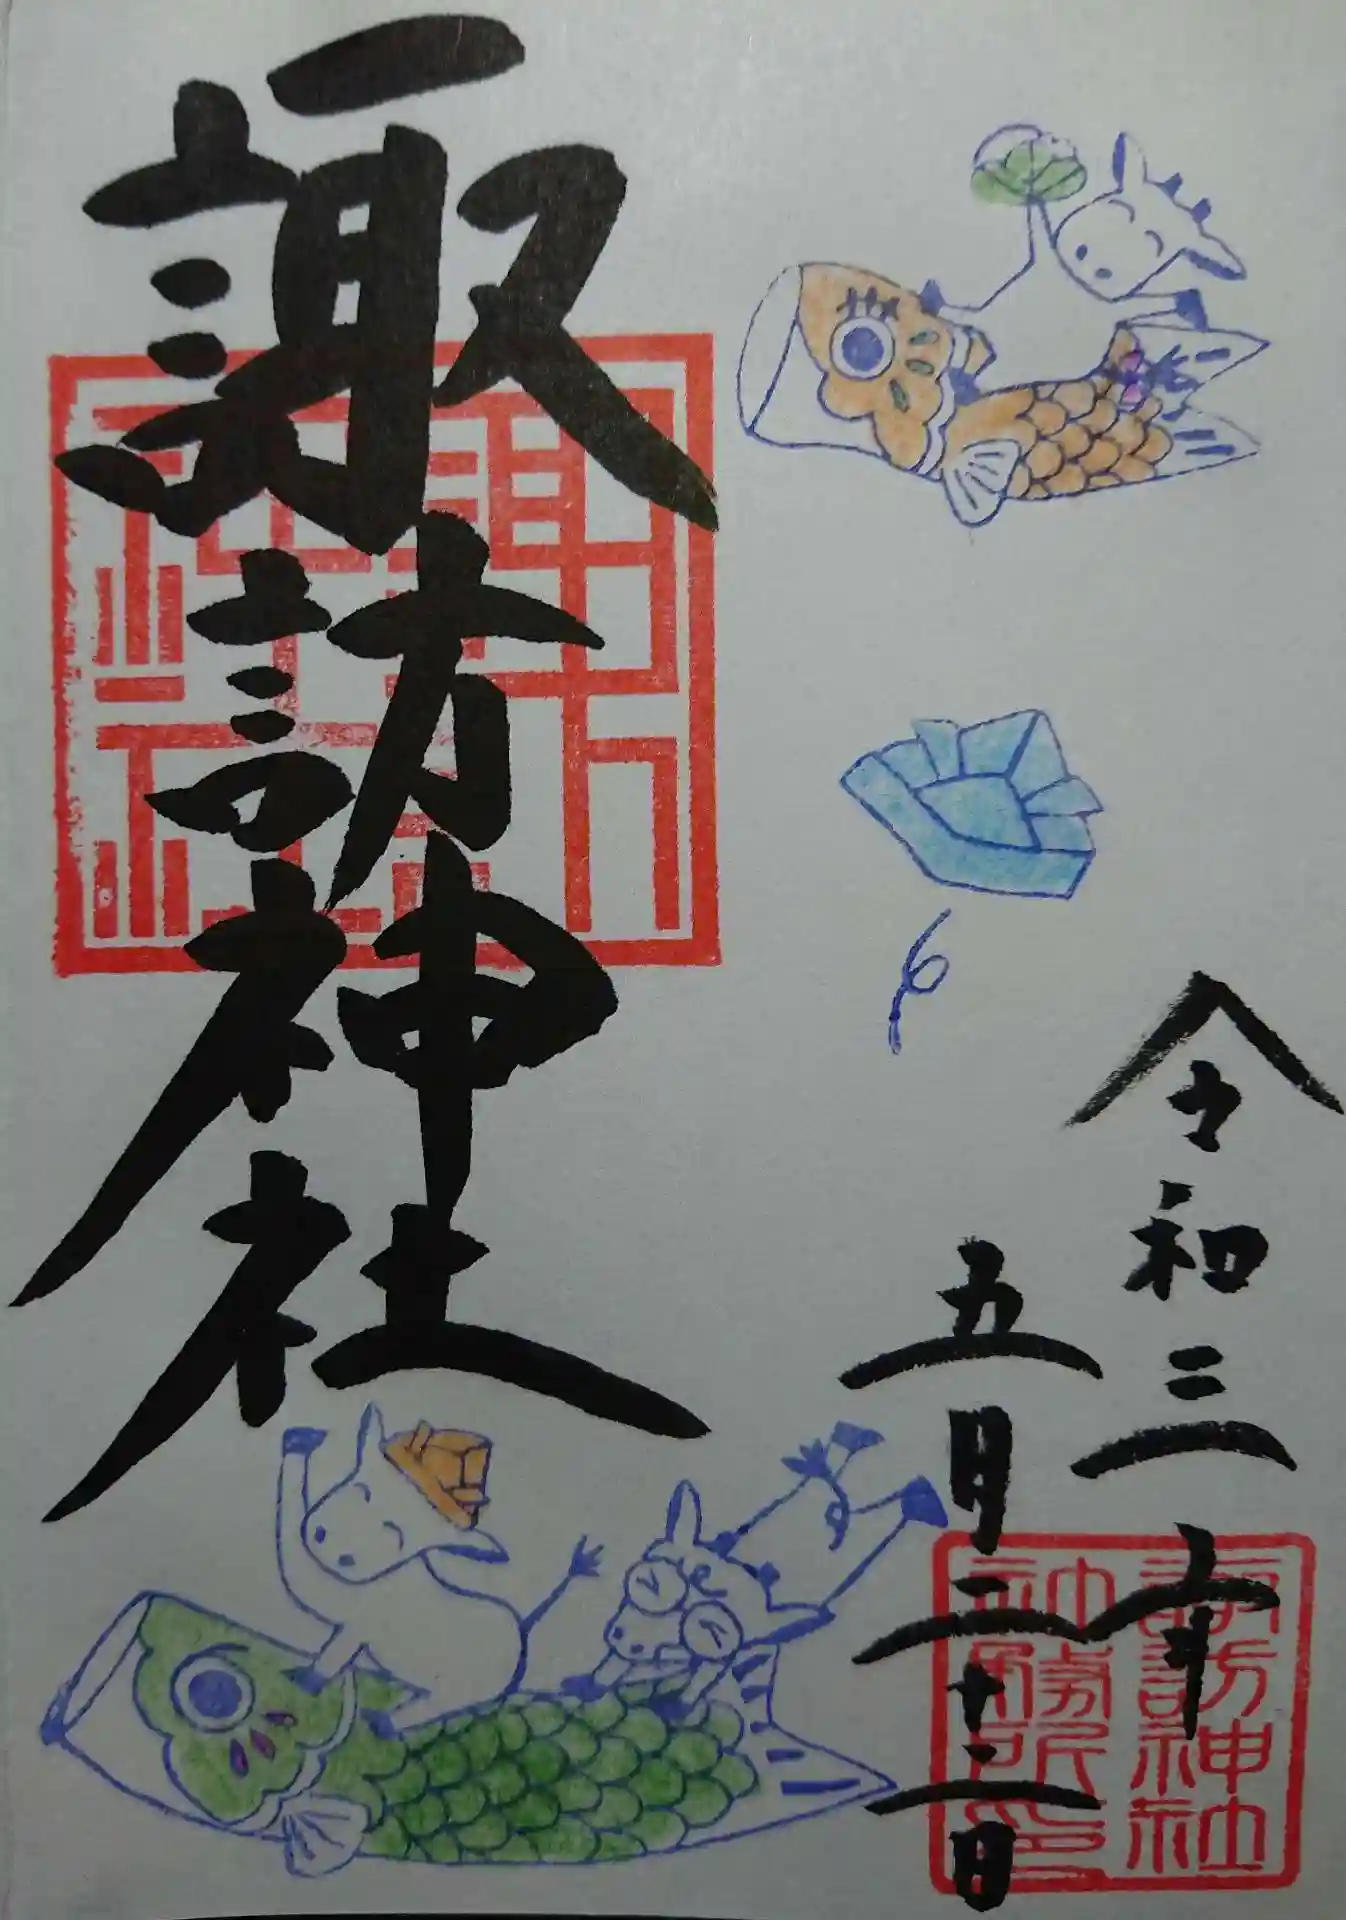 令和三年
五月二十二日
諏訪神社
諏訪神社
務所印
諏訪
神社